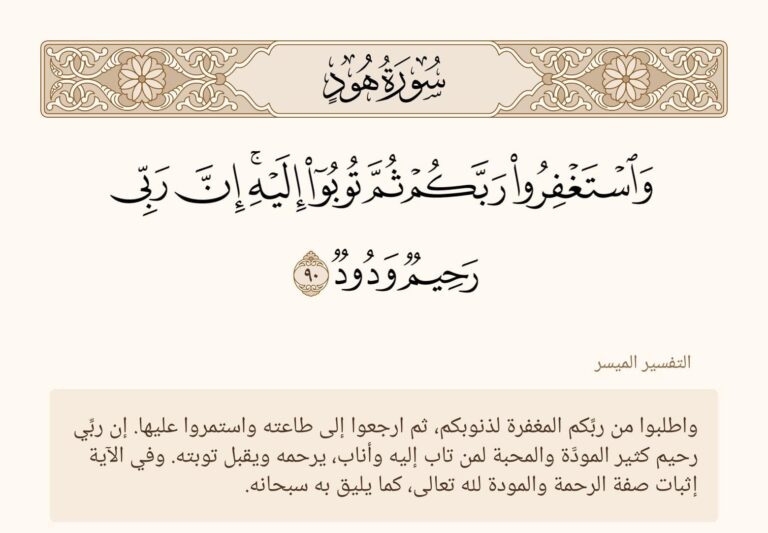 سُورَةُ هُودٍ
وَٱسۡتَغۡفِرُواْ رَبَّكُمۡ ثُمَّ تُوبُوٓاْ إِلَيۡهِۚ إِنَّ رَبِّي
رَحِيمٞ وَدُودٞ ٩٠
التفسير الميسر
واطلبوا من ربِّكم المغفرة لذنوبكم، ثم ارجعوا إلى طاعته واستمروا عليها. إن ربِّي
رحيم كثير المودَّة والمحبة لمن تاب إليه وأناب، يرحمه ويقبل توبته. وفي الآية
إثبات صفة الرحمة والمودة لله تعالى، كما يليق به سبحانه.